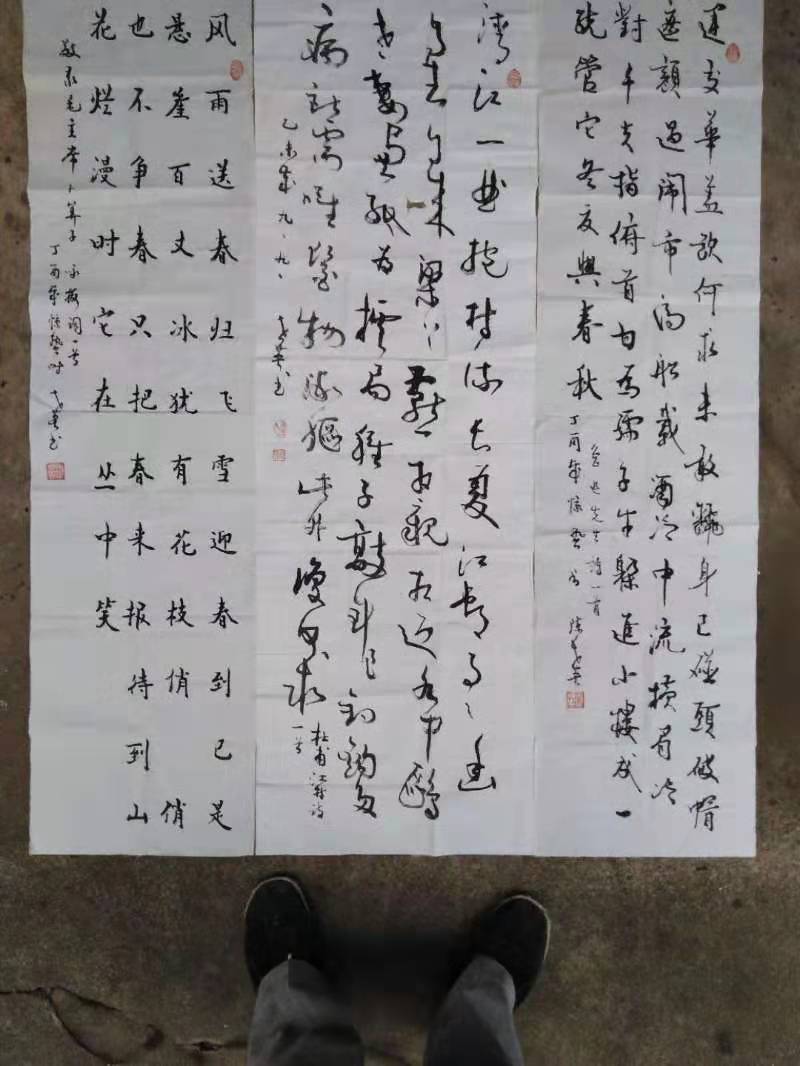 運交華蓋欲何求未敢翻身已碰頭破帽
遮顏過鬧市漏船載酒泛中流橫眉冷
對千夫指俯首甘為孺子牛躲進小樓成一
統管它冬夏與春秋
魯迅先生詩一首
丁酉年
清江一曲抱村流長夏江村事〻幽
自去自來梁上燕相親相近水中鷗
老妻畫紙為棋局稚子敲針作釣鉤多
病所需唯藥物微軀此外復何求
杜甫江村诗
一首
乙未年九、九、
风雨送春归飞雪迎春到已是
悬崖百丈冰犹有花枝俏俏
也不争春只把春来报待到山
花烂漫时它在丛中笑
敬录毛主席卜算子咏梅词一首
丁酉年